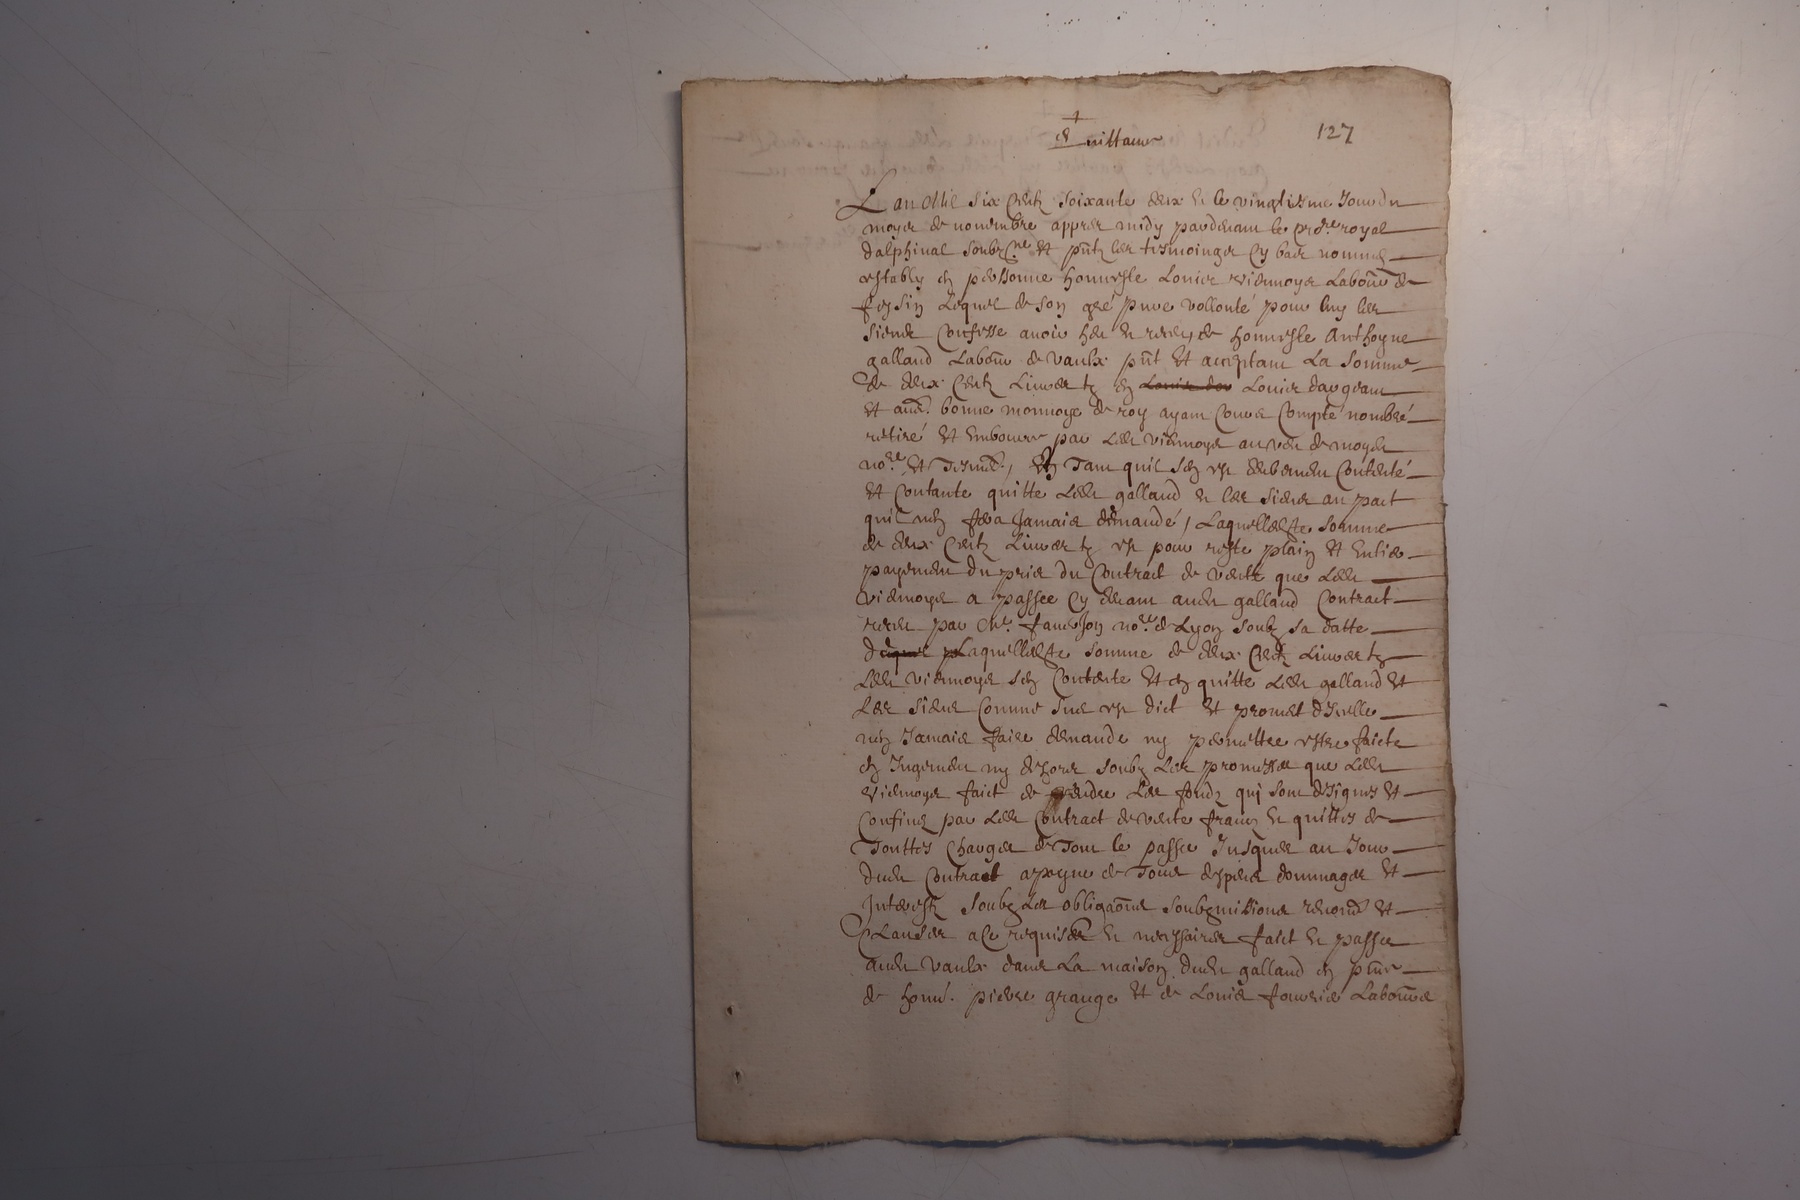 127
Quittance
L an Mil six centz soixante deux & le vingtisme Jour du
moys de novembre appres midy pardevant le nore royal
dalphinal soubzne et pntz les tesmoings cy bas nommes
estably en personne honneste Louis viennoys Labour de
feysin Lequel de son gré pure vollonté pour luy les
siens Confesse avoir heu & receu de honneste Anthoyne
galland Labour de vaulx pnt et acceptant La somme
de deux centz Livres tz en Louis dargeant
et aue. bonne monnoye de roy ayant Cours Compté nombré
retiré et Emboursé par Ledt viennoys au veu de moyd
nore et Tesmt, Tant quil sen est deuement Contenté
et Contante quitte Ledt galland & les siens au pact
quil nen fera Jamais demande, Laquelledte somme
de deux centz Livres tz est pour reste plain et Entier
payement du pris du Contract de vente que Ledt
viennoys a passee cy devant audt galland Contract
receu par Me nore de Lyon soubz sa datte
Laquelledte somme de deux centz Livres tz
Ledt viennoys sen Contente et en quitte Ledt galland et
Les siens Comme sus est dict et promet d Icelle
nen Jamais faire demande ny permettre estre faicte
en Jugement ny dehors soubz Les promesses que Ledt
viennoys faict de rendre Les fondz qui sont designes et
Confines par Ledt Contract de vente francz & quittes de
Touttes charges de Tout le passe Jusques au Jour
dudt Contract a peyne de Tous despens dommages et
Interestz soubz Les obligaons soubzmissions renon et
Clauses a ce requises & necessaires faict & passe
audt vaulx dans La maison dudt galland en pnce
de honn. pierre grange et de Louis Labours